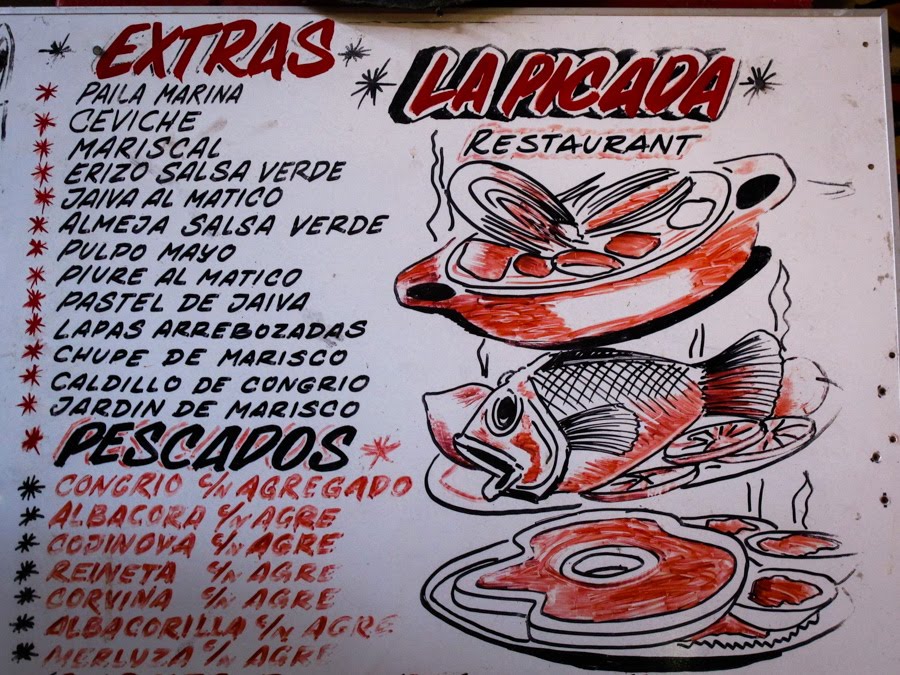 EXTRAS
PAILA MARINA
CEVICHE
MARISCAL
ERIZO SALSA VERDE
JAIVA AL MATICO
ALMEJA SALSA VERDE
PULPO MAYO
PIURE AL MATICO
PASTEL DE JAIVA
LAPAS ARREBOZADAS
CHUPE DE MARISCO
CALDILLO DE CONGRIO
JARDIN DE MARISCO
PESCADOS
CONGRIO C/N AGREGADO
ALBACORA C/N AGRE
COJINOVA C/N AGRE
REINETA C/N AGRE
CORVINA C/N AGRE
ALBACORILLA C/N AGRE
MERLUZA C/N AGRE
LA PICADA
RESTAURANT